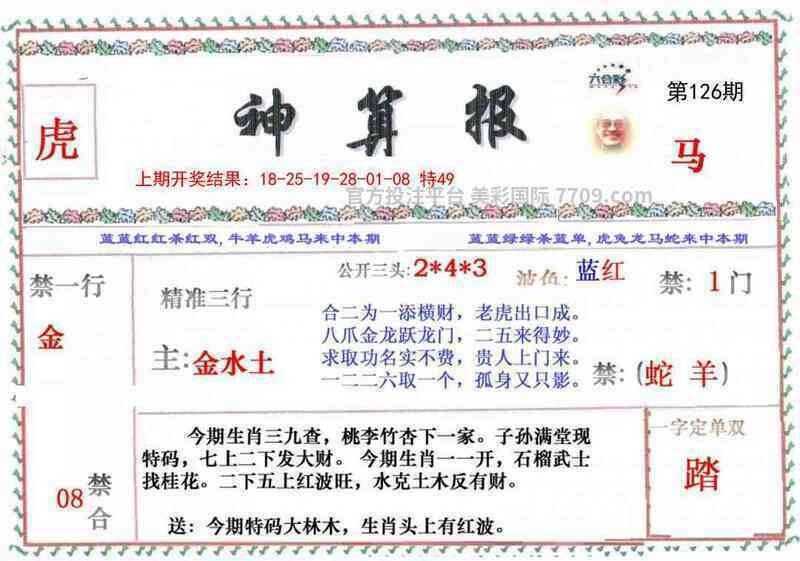 六合彩
第126期
虎
神算报
马
上期开奖结果：18-25-19-28-01-08 特49
官方投注平台 美彩国际 7709.com
蓝蓝红红杀红双,牛羊虎鸡马来中本期
蓝蓝绿绿杀蓝单,虎兔龙马蛇来中本期
禁一行
金
精准三行
主:金水土
公开三头:2*4*3
波色:蓝红
禁:1门
合二为一添横财，老虎出口成。
八爪金龙跃龙门，二五来得妙。
求取功名实不费，贵人上门来。
一二二六取一个，孤身又只影。
禁:(蛇 羊)
08
禁合
今期生肖三九查，桃李竹杏下一家。子孙满堂现
特码，七上二下发大财。 今期生肖一一开，石榴武士
找桂花。二下五上红波旺，水克土木反有财。
送：今期特码大林木，生肖头上有红波。
一字定单双
踏